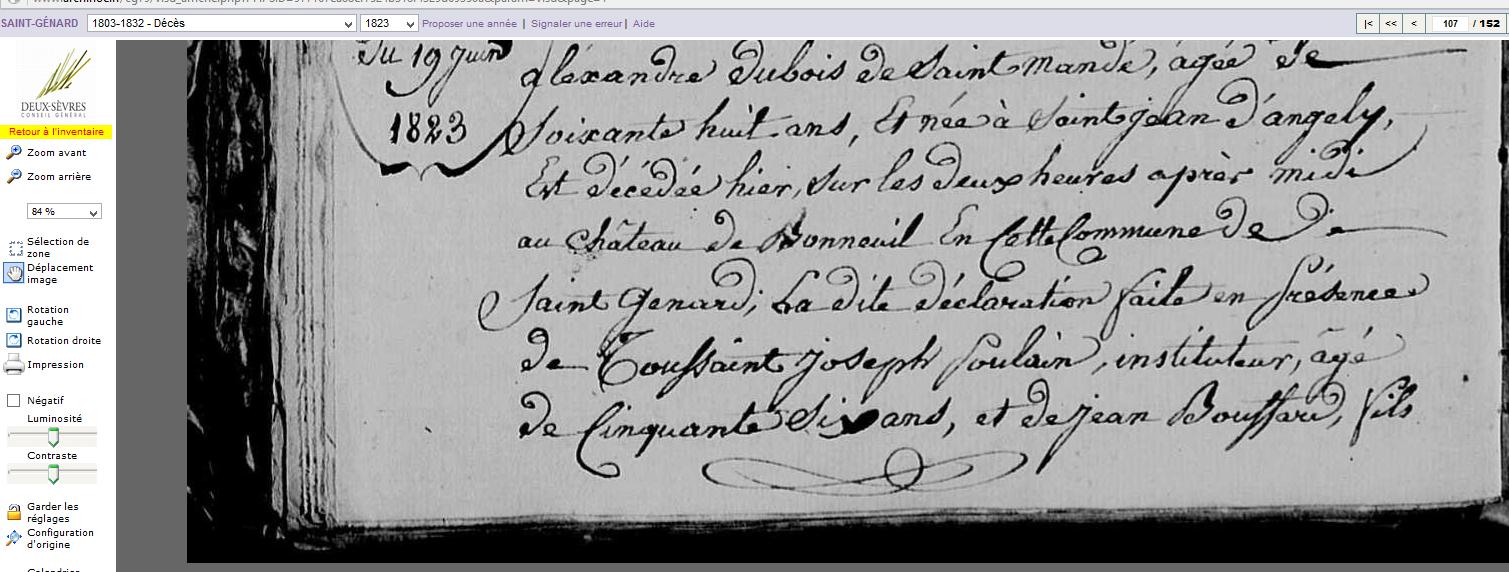 SAINT-GÉNARD 1803-1832 - Décès 1823 Proposer une année | Signaler une erreur | Aide |< << < 107 / 152
DEUX-SÈVRES
CONSEIL GÉNÉRAL
Retour à l'inventaire
Zoom avant
Zoom arrière
84 %
Sélection de
zone
Déplacement
image
Rotation
gauche
Rotation droite
Impression
Négatif
Luminosité
Contraste
Garder les
réglages
Configuration
d'origine
Calendrier
du 19 juin
1823
aléxandre dubois de Saint mandé, ágée de
Soixante huit ans, Et née à Saint jean d'angely,
Est décédée hier, sur les deux heures après midi
au château de Bonneuil En Cette Commune de De
Saint Genard; La dite déclaration faite en présence
de Toussaint joseph Poulain, instituteur, âgé
de Cinquante Six ans, et de jean Bouffard, fils